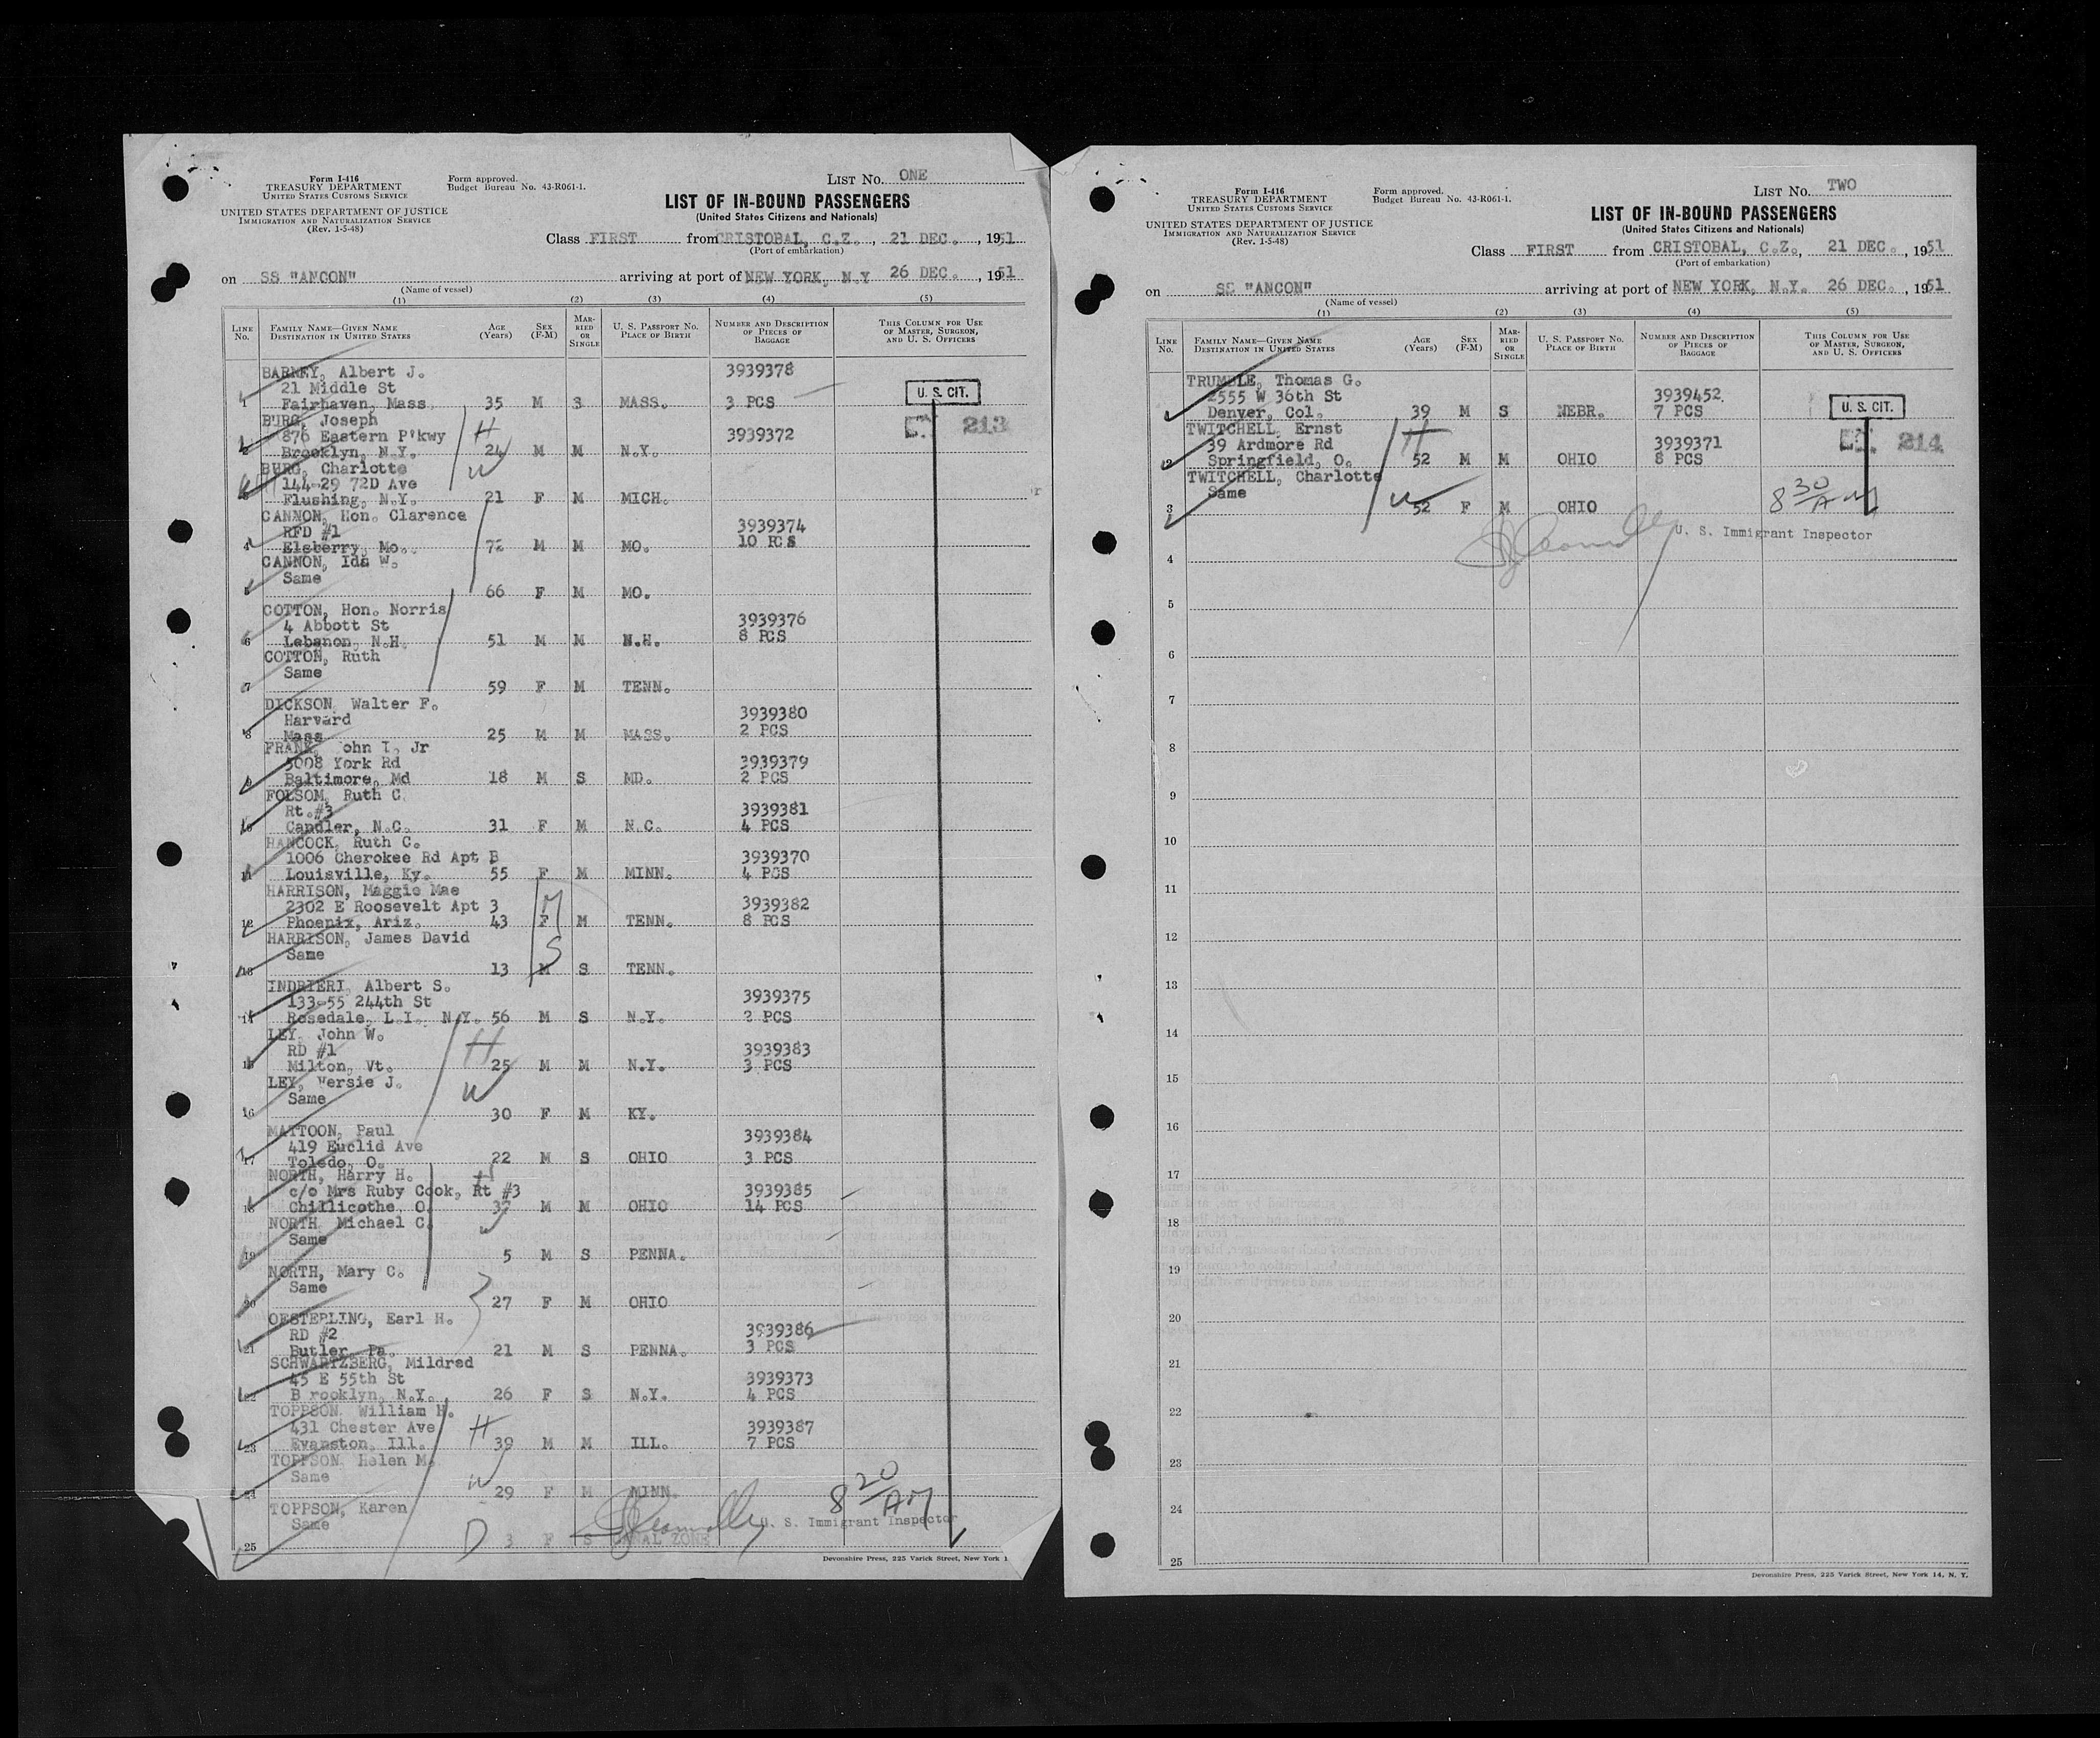 Form I-416
TREASURY DEPARTMENT
UNITED STATES CUSTOMS SERVICE
UNITED STATES DEPARTMENT OF JUSTICE
IMMIGRATION AND NATURALIZATION SERVICE
(Rev. 1-5-48)
Form approved.
Budget Bureau No. 43-R061-1.
LIST No. ONE
LIST OF IN-BOUND PASSENGERS
(United States Citizens and Nationals)
Class FIRST from CRISTOBAL, C.Z., 21 DEC., 1951
(Port of embarkation)
on SS "ANCON" arriving at port of NEW YORK, N.Y 26 DEC., 1951
(Name of vessel)
(1) (2) (3) (4) (5)
LINE No. FAMILY NAME—GIVEN NAME DESTINATION IN UNITED STATES AGE (Years) SEX (F-M) MARRIED OR SINGLE U. S. PASSPORT No. PLACE OF BIRTH NUMBER AND DESCRIPTION OF PIECES OF BAGGAGE THIS COLUMN FOR USE OF MASTER, SURGEON, AND U. S. OFFICERS
BARNEY, Albert J. 3939378
21 Middle St
1 Fairhaven, Mass. 35 M S MASS. 3 PCS U. S. CIT.
BURG, Joseph H 213
876 Eastern P'kwy 3939372
2 Brooklyn, N.Y. 24 M M N.Y.
BURG, Charlotte W
144-29 72D Ave
3 Flushing, N.Y. 21 F M MICH.
CANNON, Hon. Clarence
RFD #1 3939374
4 Elsberry, Mo. 72 M M MO. 10 PCS
CANNON, Ida W.
Same
5 66 F M MO.
COTTON, Hon. Norris
4 Abbott St 3939376
6 Lebanon, N.H. 51 M M N.H. 8 PCS
COTTON, Ruth
Same
7 59 F M TENN.
DICKSON, Walter F.
Harvard 3939380
8 Mass 25 M M MASS. 2 PCS
FRANK, John I, Jr
5008 York Rd 3939379
9 Baltimore, Md 18 M S MD. 2 PCS
FOLSOM, Ruth C.
Rt.#3 3939381
10 Candler, N.C. 31 F M N.C. 4 PCS
HANCOCK, Ruth C.
1006 Cherokee Rd Apt B 3939370
11 Louisville, Ky. 55 F M MINN. 4 PCS
HARRISON, Maggie Mae
2302 E Roosevelt Apt 3 M 3939382
12 Phoenix, Ariz. 43 F M TENN. 8 PCS
HARRISON, James David
Same S
13 13 M S TENN.
INDRIERI, Albert S.
133-55 244th St 3939375
14 Rosedale, L.I. N.Y. 56 M S N.Y. 2 PCS
LEY, John W. H
RD #1 3939383
15 Milton, Vt. 25 M M N.Y. 3 PCS
LEY, Versie J. W
Same
16 30 F M KY.
MATTOON, Paul
419 Euclid Ave 3939384
17 Toledo, O. 22 M S OHIO 3 PCS
NORTH, Harry H. H
c/o Mrs Ruby Cook, Rt #3 3939385
18 Chillicothe, O. 37 M M OHIO 14 PCS
NORTH, Michael C.
Same
19 5 M S PENNA.
NORTH, Mary C.
Same
20 27 F M OHIO
OESTERLING, Earl H.
RD #2 3939386
21 Butler, Pa. 21 M S PENNA. 3 PCS
SCHWARTZBERG, Mildred
45 E 55th St 3939373
22 B rooklyn, N.Y. 26 F S N.Y. 4 PCS
TOPPSON, William H. H
431 Chester Ave 3939387
23 Evanston, Ill. 39 M M ILL. 7 PCS
TOPPSON, Helen M.
Same W
24 29 F M MINN. 8 20/AM
TOPPSON, Karen
Same U. S. Immigrant Inspector
25 D 3 F S CANAL ZONE
Devonshire Press, 225 Varick Street, New York 1
Form I-416
TREASURY DEPARTMENT
UNITED STATES CUSTOMS SERVICE
UNITED STATES DEPARTMENT OF JUSTICE
IMMIGRATION AND NATURALIZATION SERVICE
(Rev. 1-5-48)
Form approved.
Budget Bureau No. 43-R061-1.
LIST No. TWO
LIST OF IN-BOUND PASSENGERS
(United States Citizens and Nationals)
Class FIRST from CRISTOBAL, C.Z., 21 DEC., 1951
(Port of embarkation)
on SS "ANCON" arriving at port of NEW YORK, N.Y. 26 DEC., 1951
(Name of vessel)
(1) (2) (3) (4) (5)
LINE No. FAMILY NAME—GIVEN NAME DESTINATION IN UNITED STATES AGE (Years) SEX (F-M) MARRIED OR SINGLE U. S. PASSPORT No. PLACE OF BIRTH NUMBER AND DESCRIPTION OF PIECES OF BAGGAGE THIS COLUMN FOR USE OF MASTER, SURGEON, AND U. S. OFFICERS
TRUMBLE, Thomas G.
2555 W 36th St 3939452
1 Denver, Col. 39 M S NEBR. 7 PCS U. S. CIT.
TWITCHELL, Ernst H
39 Ardmore Rd 3939371 214
2 Springfield, O. 52 M M OHIO 8 PCS
TWITCHELL, Charlotte
Same W
3 52 F M OHIO 8 30/AM
U. S. Immigrant Inspector
4
5
6
7
8
9
10
11
12
13
14
15
16
17
18
19
20
21
22
23
24
25
Devonshire Press, 225 Varick Street, New York 14, N. Y.